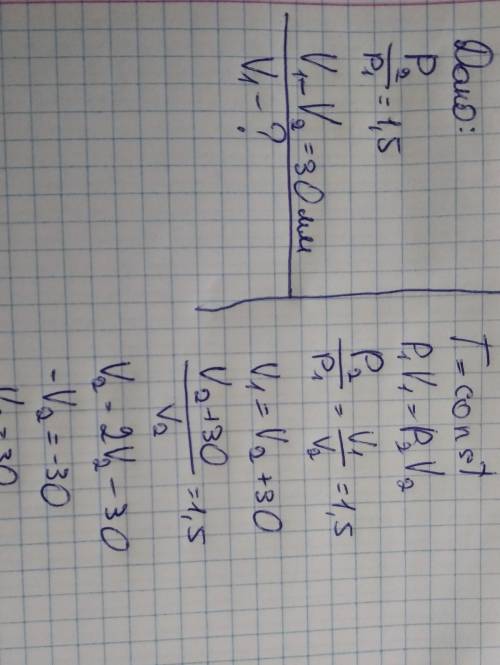 Дано:
p2/p1 = 1,5
V1 - V2 = 30 мл
V1 - ?
T = const
p1V1 = p2V2
p2/p1 = V1/V2 = 1,5
V1 = V2 + 30
V2 + 30/V2 = 1,5
V2 = 2V2 - 30
-V2 = -30